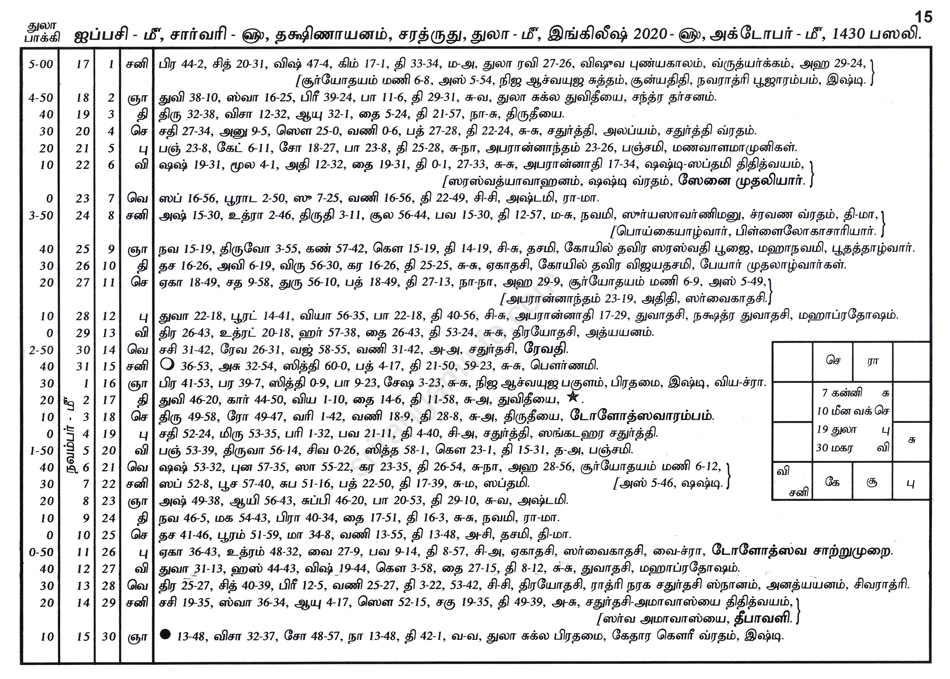 15
துலா பாக்கி
ஐப்பசி - மீ, சார்வரி - ௵, தக்ஷிணாயனம், சரத்ருது, துலா - மீ, இங்கிலீஷ் 2020-௵, அக்டோபர் - மீ, 1430 பஸலி.
5-00 17 1 சனி பிர 44-2, சித் 20-31, விஷ் 47-4, கிம் 17-1, தி 33-34, ம-அ, துலா ரவி 27-26, விஷுவ புண்யகாலம், வ்ருத்யர்க்கம், அஹ 29-24,
[சூர்யோதயம் மணி 6-8, அஸ் 5-54, நிஜ ஆச்வயுஜ சுத்தம், சூன்யதிதி, நவராத்ரி பூஜாரம்பம், இஷ்டி.
4-50 18 2 ஞா துவி 38-10, ஸ்வா 16-25, பிரீ 39-24, பா 11-6, தி 29-31, சு-வ, துலா சுக்ல துவிதீயை, சந்த்ர தர்சனம்.
40 19 3 தி திரு 32-38, விசா 12-32, ஆயு 32-1, தை 5-24, தி 21-57, நா-சு, திருதீயை.
30 20 4 செ சதி 27-34, அனு 9-5, ஸௌ 25-0, வணி 0-6, பத் 27-28, தி 22-24, சு-சு, சதுர்த்தி, அலப்யம், சதுர்த்தி வ்ரதம்.
20 21 5 பு பஞ் 23-8, கேட் 6-11, சோ 18-27, பா 23-8, தி 25-28, சு-நா, அபரான்னாந்தம் 23-26, பஞ்சமி, மணவாளமாமுனிகள்.
10 22 6 வி ஷஷ் 19-31, மூல 4-1, அதி 12-32, தை 19-31, தி 0-1, 27-33, சு-சு, அபரான்னாதி 17-34, ஷஷ்டி-ஸப்தமி திதித்வயம்,
[ஸரஸ்வத்யாவாஹனம், ஷஷ்டி வ்ரதம், ஸேனை முதலியார்.
0 23 7 வெ ஸப் 16-56, பூராட 2-50, ஸு 7-25, வணி 16-56, தி 22-49, சி-சி, அஷ்டமி, ரா-மா.
3-50 24 8 சனி அஷ் 15-30, உத்ரா 2-46, திருதி 3-11, சூல 56-44, பவ 15-30, தி 12-57, ம-சு, நவமி, ஸுர்யஸாவர்ணிமனு, ச்ரவண வ்ரதம், தி-மா,
[பொய்கையாழ்வார், பிள்ளைலோகாசாரியார்.
40 25 9 ஞா நவ 15-19, திருவோ 3-55, கண் 57-42, கௌ 15-19, தி 14-19, சி-சு, தசமி, கோயில் தவிர ஸரஸ்வதி பூஜை, மஹாநவமி, பூதத்தாழ்வார்.
30 26 10 தி தச 16-26, அவி 6-19, விரு 56-30, கர 16-26, தி 25-25, சு-சு, ஏகாதசி, கோயில் தவிர விஜயதசமி, பேயார் முதலாழ்வார்கள்.
20 27 11 செ ஏகா 18-49, சத 9-58, துரு 56-10, பத் 18-49, தி 27-13, நா-நா, அஹ 29-9, சூர்யோதயம் மணி 6-9, அஸ் 5-49,
[அபரான்னாந்தம் 23-19, அதிதி, ஸர்வைகாதசி.
10 28 12 பு துவா 22-18, பூரட் 14-41, வியா 56-35, பா 22-18, தி 40-56, சி-சு, அபரான்னாதி 17-29, துவாதசி, நக்ஷத்ர துவாதசி, மஹாப்ரதோஷம்.
0 29 13 வி திர 26-43, உத்ரட் 20-18, ஹர் 57-38, தை 26-43, தி 53-24, சு-சு, திரயோதசி, அத்யயனம்.
2-50 30 14 வெ சசி 31-42, ரேவ 26-31, வஜ் 58-55, வணி 31-42, அ-அ, சதுர்தசி, ரேவதி.
40 31 15 சனி 36-53, அசு 32-54, ஸித்தி 60-0, பத் 4-17, தி 21-50, 59-23, சு-சு, பௌர்ணமி.
நவம்பர் - மீ
30 1 16 ஞா பிர 41-53, பர 39-7, ஸித்தி 0-9, பா 9-23, சேஷ 3-23, சு-சு, நிஜ ஆச்வயுஜ பகுளம், பிரதமை, இஷ்டி, விய-ச்ரா.
20 2 17 தி துவி 46-20, கார் 44-50, விய 1-10, தை 14-6, தி 11-58, சு-அ, துவிதீயை, ★.
10 3 18 செ திரு 49-58, ரோ 49-47, வரி 1-42, வணி 18-9, தி 28-8, சு-அ, திருதீயை, டோளோத்ஸவாரம்பம்.
0 4 19 பு சதி 52-24, மிரு 53-35, பரி 1-32, பவ 21-11, தி 4-40, சி-அ, சதுர்த்தி, ஸங்கடஹர சதுர்த்தி.
1-50 5 20 வி பஞ் 53-39, திருவா 56-14, சிவ 0-26, ஸித்த 58-1, கௌ 23-1, தி 15-31, த-அ, பஞ்சமி.
40 6 21 வெ ஷஷ் 53-32, புன 57-35, ஸா 55-22, கர 23-35, தி 26-54, சு-நா, அஹ 28-56, சூர்யோதயம் மணி 6-12,
30 7 22 சனி ஸப் 52-8, பூச 57-40, சுப 51-16, பத் 22-50, தி 17-39, சு-ம, ஸப்தமி. [அஸ் 5-46, ஷஷ்டி.
20 8 23 ஞா அஷ் 49-38, ஆயி 56-43, சுப்பி 46-20, பா 20-53, தி 29-10, சு-வ, அஷ்டமி.
10 9 24 தி நவ 46-5, மக 54-43, பிரா 40-34, தை 17-51, தி 16-3, சு-சு, நவமி, ரா-மா.
0 10 25 செ தச 41-46, பூரம் 51-59, மா 34-8, வணி 13-55, தி 13-48, அ-சி, தசமி, தி-மா.
0-50 11 26 பு ஏகா 36-43, உத்ரம் 48-32, வை 27-9, பவ 9-14, தி 8-57, சி-அ, ஏகாதசி, ஸர்வைகாதசி, வை-ச்ரா, டோளோத்ஸவ சாற்றுமுறை.
40 12 27 வி துவா 31-13, ஹஸ் 44-43, விஷ் 19-44, கௌ 3-58, தை 27-15, தி 8-12, சு-சு, துவாதசி, மஹாப்ரதோஷம்.
30 13 28 வெ திர 25-27, சித் 40-39, பிரீ 12-5, வணி 25-27, தி 3-22, 53-42, சி-சி, திரயோதசி, ராத்ரி நரக சதுர்தசி ஸ்நானம், அனத்யயனம், சிவராத்ரி.
20 14 29 சனி சசி 19-35, ஸ்வா 36-34, ஆயு 4-17, ஸௌ 52-15, சகு 19-35, தி 49-39, அ-சு, சதுர்தசி-அமாவாஸ்யை திதித்வயம்,
[ஸர்வ அமாவாஸ்யை, தீபாவளி.
10 15 30 ஞா ● 13-48, விசா 32-37, சோ 48-57, நா 13-48, தி 42-1, வ-வ, துலா சுக்ல பிரதமை, கேதார கௌரீ வ்ரதம், இஷ்டி.
செ ரா
7 கன்னி சு
10 மீன வக் செ
19 துலா பு
30 மகர வி
சு
வி சனி கே சூ பு